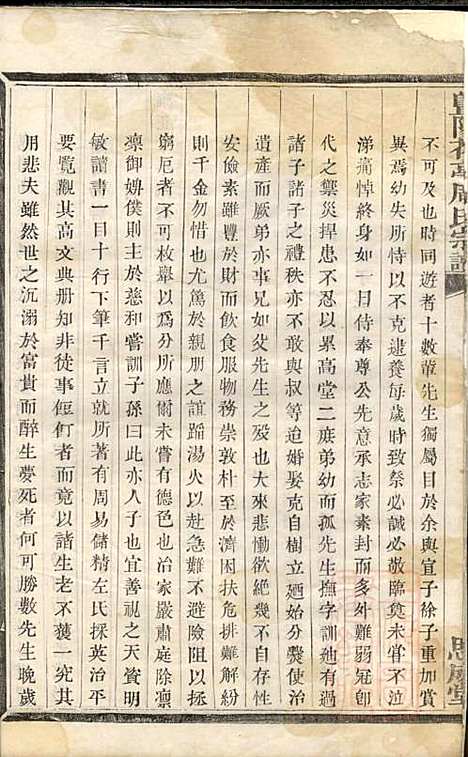 暨陽花亭周氏宗譜
不可及也時同遊者十數輩先生獨屬目於余與宣子徐子重加賞
異焉幼失所恃以不克逮養每歲時致祭必誠必敬臨奠未嘗不泣
涕痛悼終身如一日侍奉尊公先意承志家素封中外多難弱冠卽
代之禦災捍患不忍以累高堂二庶弟幼而孤先生撫字訓誨無異
諸子諸子之禮秩亦敢與叔等迨婚娶克自樹立廼分爨使治
遺產而厥弟亦事兄如父先生之歿也大來悲慟欲絕幾不自存性
安儉素雖豐於財而飲食服物務崇敦朴至於濟困扶危排難解紛
則千金勿惜也尤篤於親朋之誼蹈湯火以赴急難不避險阻以拯
窮厄者不可枚舉以爲分所應爾未嘗有德色也治家嚴肅庭除凛
凛御媍僕則主於慈和嘗訓子孫曰此亦人子也宜善視之天資明
敏讀書一目十行下筆千言立就所著有周易儲精左氏採英治平
要覽觀其高文典册知非徒事飣飣者而竟以諸生老不獲一究其
用悲夫雖然世之沉溺於富貴而醉生夢死者何可勝數先生晚歲
思成堂